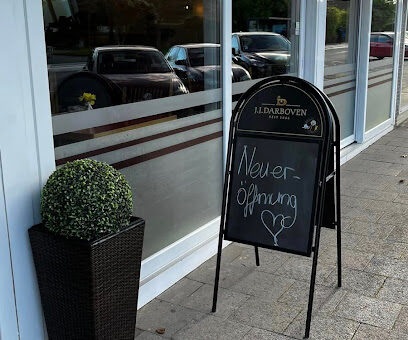 J.J.DARBOVEN
SEIT 1866
Neuer-
öffnung